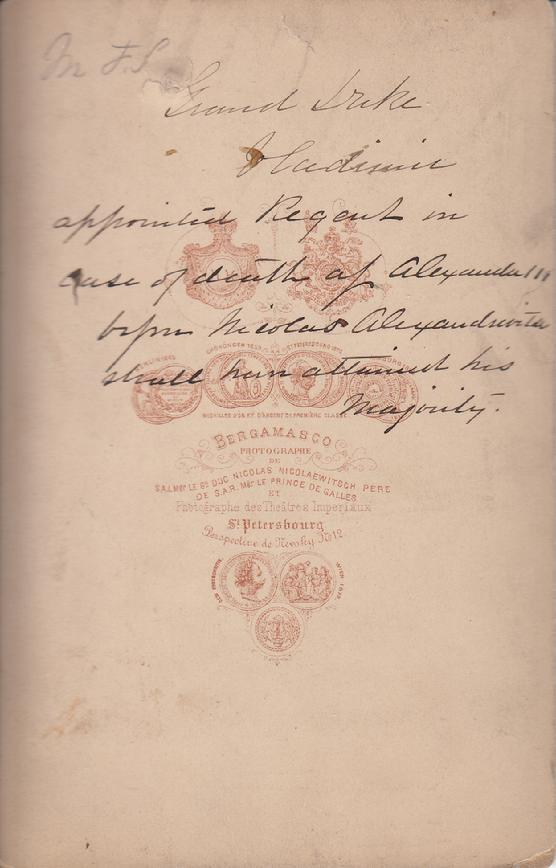 M F.S
Grand Duke
Vladimir
appointed Regent in
case of death of Alexander III
before Nicolas Alexandrovitch
shall have attained his
Majority.
MEDAILLES D'OR ET D'ARGENT DE PREMIERE CLASSE
BERGAMASCO
PHOTOGRAPHE
DE
S.A.I. Mgr LE Gd DUC NICOLAS NICOLAEWITSCH PERE
DE S.A.R. Mgr LE PRINCE DE GALLES
ET
Photographe des Théâtres Imperiaux
St Petersbourg
Perspective de Nevsky, No 12.
WIEN 1873